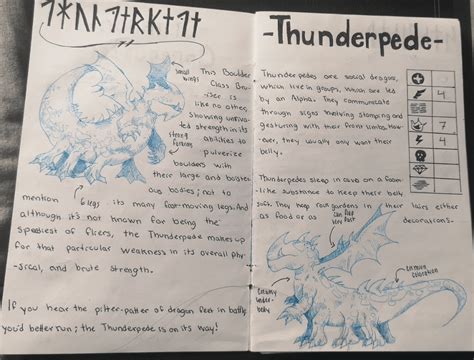 small wings
This Boulder
Class Bru-
iser is
like no other,
Showing unriva-
led strength in its
abilities to
pulverize
boulders with
their large and bosste-
ous bodies; not to
strong forearms
mention
6 legs
its many fast-moving legs. And
although it's not known for being the
speediest of fliers, the Thunderpede makes up
for that particular weakness in its overall phy-
-sical, and brute strength.
If you hear the pitter-patter of dragon feet in battle,
you'd better run; the Thunderpede is on its way!
-Thunderpede-
Thunderpedes are social dragons,
which live in groups, which are led
by an Alpha. They communicate
through signs involving stomping and
gesturing with their front limbs. How-
ever, they usually only want their
belly.
4
7
4
Thunderpedes sleep in caves on a foam-
like substance to keep their belly
soft. They keep rock gardens in their lairs either
as food or as
decorations.
can fold very flat
creamy under-belly
coloration